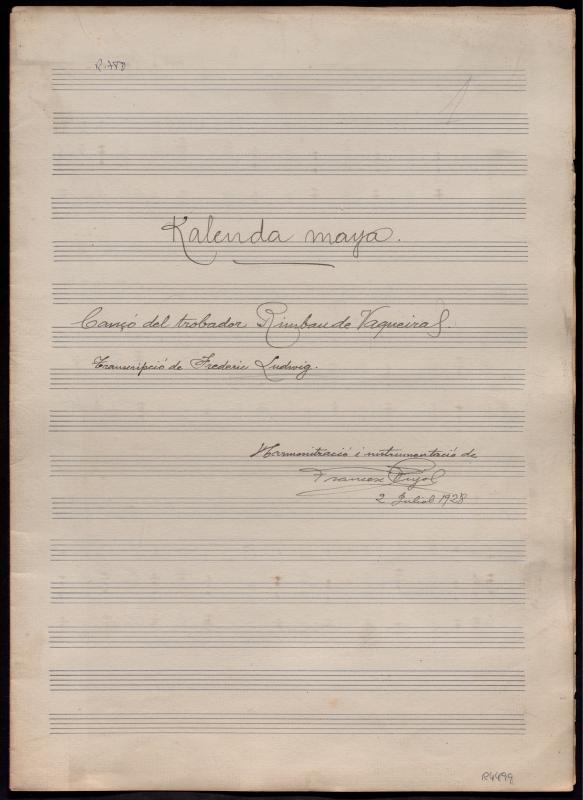 R.788
1
Kalenda maya.
Cançó del trobador Rimbau de Vaqueiras.
Transcripció de Frederic Ludwig.
Harmonització i instrumentació de
Francesc Pujol
2 Juliol 1928
R4499